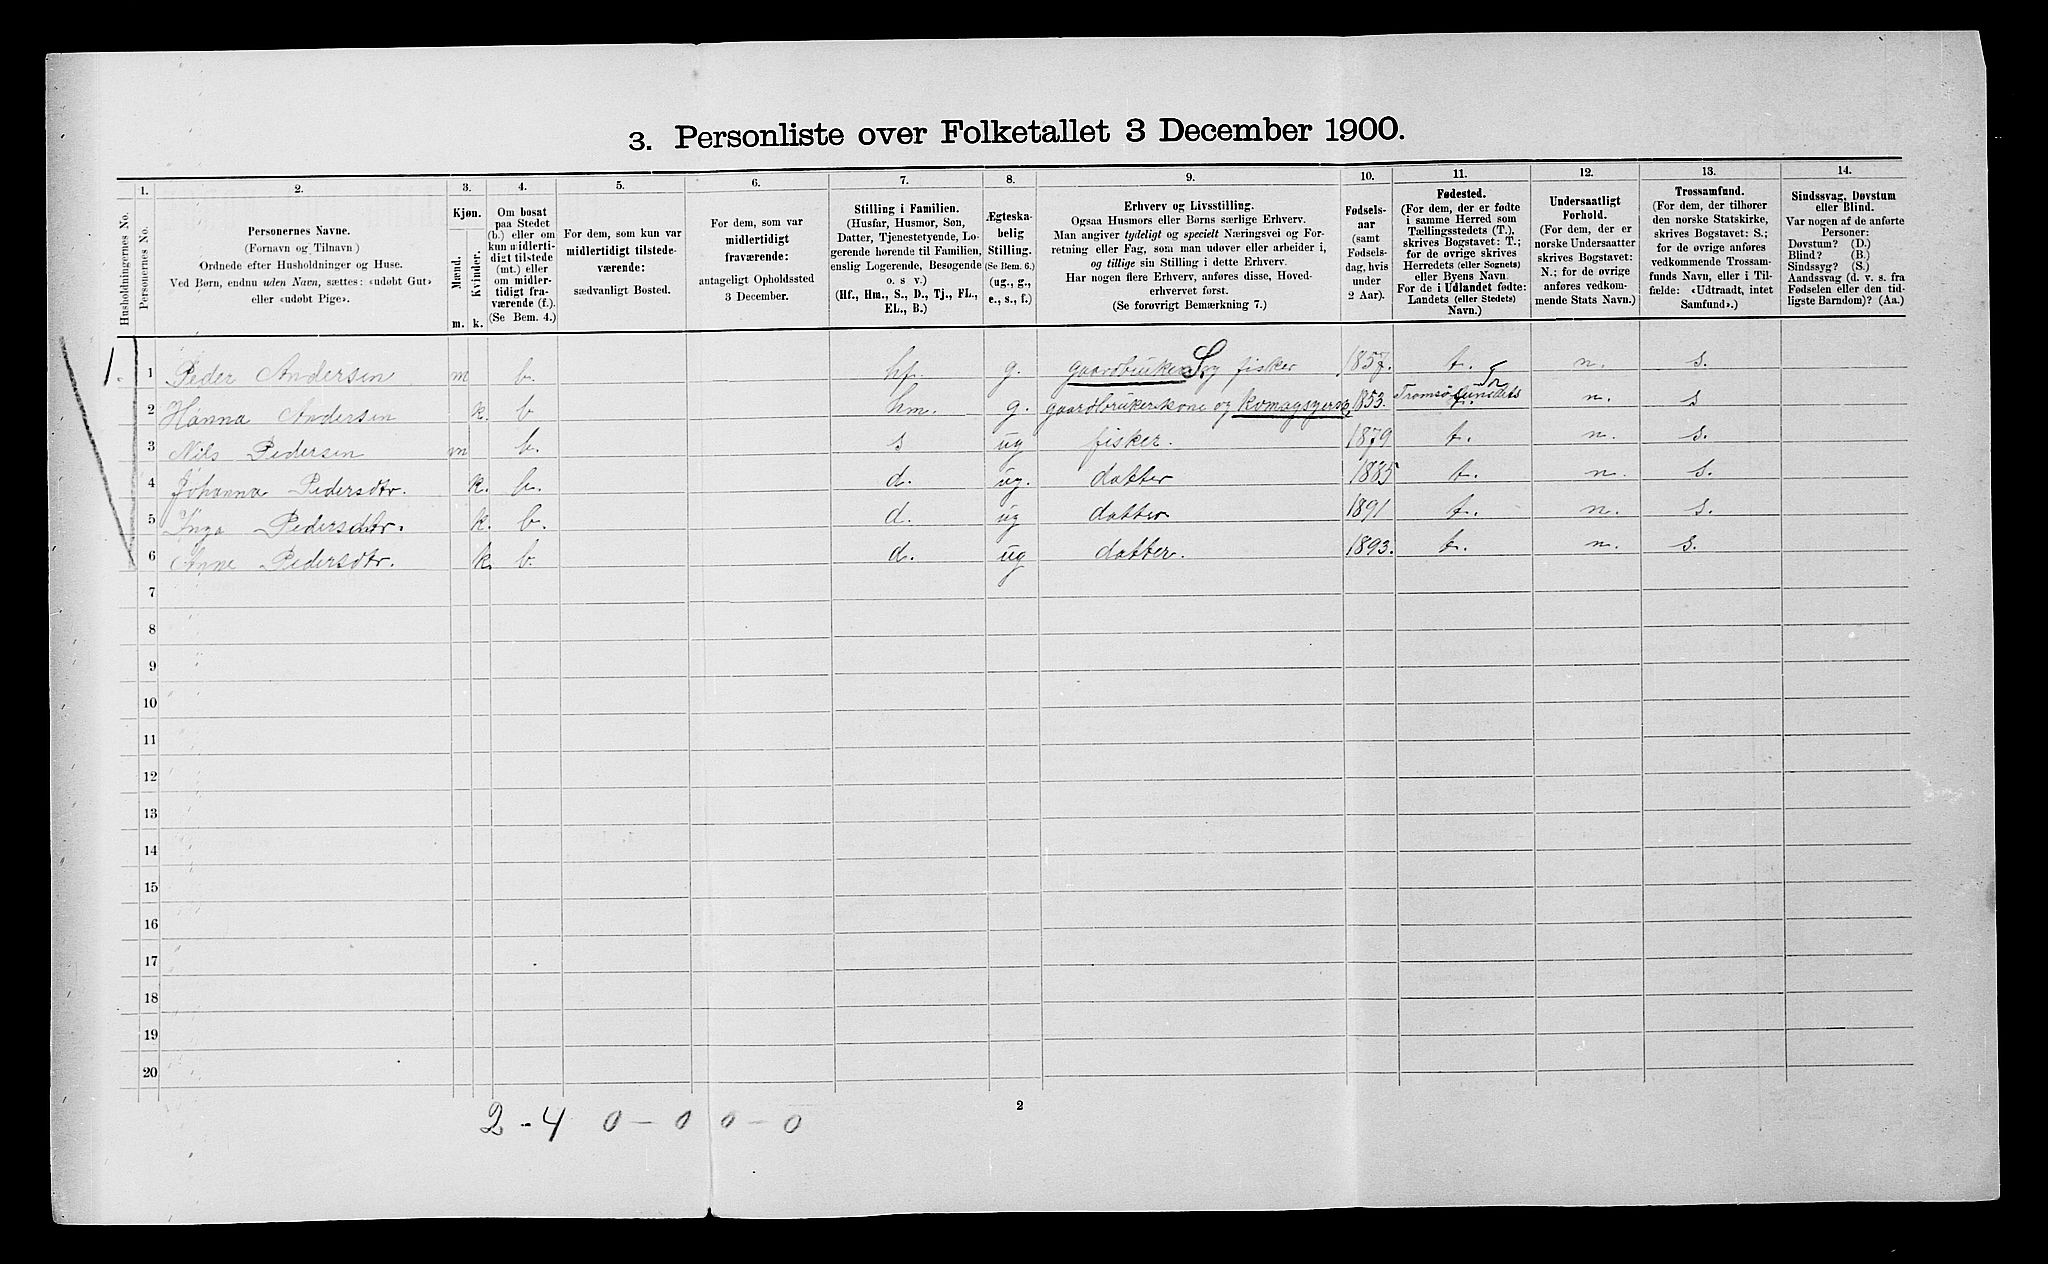 3. Personliste over Folketallet 3 December 1900.
1. 2. 3. 4. 5. 6. 7. 8. 9. 10. 11. 12. 13. 14.
Husholdningernes No.
Personernes No.
Personernes Navne.
(Fornavn og Tilnavn.)
Ordnede efter Husholdninger og Huse.
Ved Børn, endnu uden Navn, sættes: «udøbt Gut»
eller «udøbt Pige».
Kjøn.
Mænd.
Kvinder.
m. k.
Om bosat
paa Stedet
(b.) eller om
kun midlerti-
digt tilstede
(mt.) eller
om midler-
tidigt fra-
værende (f.).
(Se Bem. 4.)
For dem, som kun var
midlertidigt tilstede-
værende:
sædvanligt Bosted.
For dem, som var
midlertidigt
fraværende:
antageligt Opholdssted
3 December.
Stilling i Familien.
(Husfar, Husmor, Søn,
Datter, Tjenestetyende, Lo-
gerende hørende til Familien,
enslig Logerende, Besøgende
o. s v.)
(Hf., Hm., S., D., Tj., FL.,
EL., B.)
Ægteska-
belig
Stilling.
(Se Bem. 6.)
(ug., g.,
e., s., f.)
Erhverv og Livsstilling.
Ogsaa Husmors eller Børns særlige Erhverv.
Man angiver tydeligt og specielt Næringsvei og For-
retning eller Fag, som man udøver eller arbeider i,
og tillige sin Stilling i dette Erhverv.
Har nogen flere Erhverv, anføres disse, Hoved-
erhvervet først.
(Se forøvrigt Bemærkning 7.)
Fødsels-
aar
(samt
Fødsels-
dag, hvis
under
2 Aar).
Fødested.
(For dem, der er fødte
i samme Herred som
Tællingsstedets (T.),
skrives Bogstavet: T.;
for de øvrige skrives
Herredets (eller Sognets)
eller Byens Navn.
For de i Udlandet fødte:
Landets (eller Stedets)
Navn.)
Undersaatligt
Forhold.
(For dem, der er
norske Undersaatter
skrives Bogstavet:
N.; for de øvrige
anføres vedkom-
mende Stats Navn.)
Trossamfund.
(For dem, der tilhører
den norske Statskirke,
skrives Bogstavet: S.;
for de øvrige anføres
vedkommende Trossam-
funds Navn, eller i Til-
fælde: «Udtraadt, intet
Samfund».)
Sindssvag, Døvstum
eller Blind.
Var nogen af de anførte
Personer:
Døvstum? (D.)
Blind? (B.)
Sindssyg? (S.)
Aandssvag (d. v. s. fra
Fødselen eller den tid-
ligste Barndom)? (Aa.)
1. 1 Peder Andersen m b. hf. g. gaardbruker S og fisker 1857. t. n. s.
2 Hanna Andersen k. b hm. g. gaardbrukerskone og komagsyerske 1853. Tromsøsundets n. s
3 Nils Pedersen m b. s ug fisker. 1879 t. n. s.
4 Johanna Pedersdtr. k. b. d. ug. datter 1885 t. n. s.
5 Inga Pedersdtr. k. b. d. ug datter 1891 t. n. s.
6 Anne Pedersdtr. k. b. d. ug datter. 1893. t. n. s.
7
8
9
10
11
12
13
14
15
16
17
18
19
20
2 - 4 0 - 0 0 - 0
2